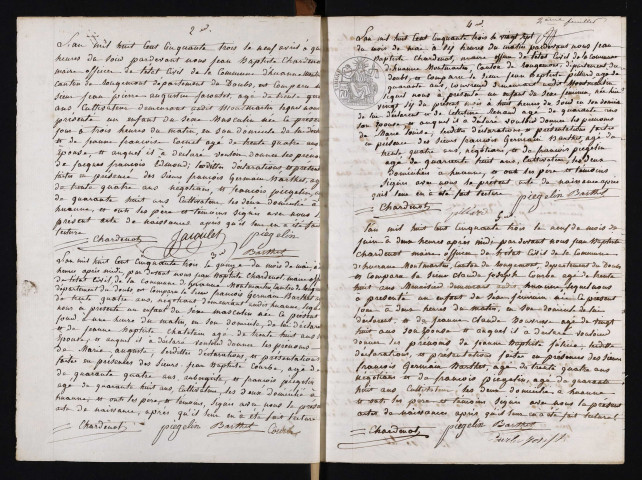 2 d.
L'an mil huit cent cinquante trois le neuf avril à
heures du soir pardevant nous jean Baptiste Chardenot
maire officier de l'état civil de la Commune d'huanne Montm
Canton de Rougemont département du Doubs, est Comparu le
Sieur jean pierre augustin jacoulet agé de
ans Cultivateur demeurant audit Montmartin lequel nous a
présenté un enfant du Sexe Masculin né Ce présent
jour à trois heures du matin, en son domicile de lui déclarant
& de jeanne françoise agé de trente quatre ans
épouse, & auquel il a déclaré vouloir donner les prénoms
de jacques françois Edmond, lesdites déclarations & présentation
faites en présence des Sieurs françois Germain Barthet, agé
de trente quatre ans négociant, & françois piegelin, agé
de quarante huit ans Cultivateur les deux domiciliés à
huanne, & ont les père & témoins signés avec nous le
présent acte de naissance après qu'il leur en a été fait
lecture
Chardenot Jacoulet piegelin Barthet
3 d.
L'an mil huit cent cinquante trois le quinze du mois de mai, à
heures après midi, par devant nous jean Baptiste Chardenot maire officier
de l'état Civil de la Commune d'huanne Montmartin Canton de Rougemont
département du Doubs, est Comparu le Sieur françois Germain Barthet agé
de trente quatre ans, négociant demeurant audit huanne lequel
nous a présenté un enfant du sexe masculin né Ce présent
jour à une heure du matin, en son domicile, de lui déclarant
& de jeanne Baptiste Chatelain agé de trente huit ans
épouse, & auquel il a déclaré vouloir donner les prénoms
de Marie, auguste, lesdites déclarations, & présentation
faites en présence des Sieurs jean Baptiste Courbe, agé de
de quarante quatre ans, aubergiste, & françois piegelin
agé de quarante huit ans Cultivateur, les deux domiciliés à
huanne, & ont les père, & témoins, signés avec nous le présent
acte de naissance, après qu'il leur en a été fait lecture
Chardenot piegelin Barthet Courbe
4 d.
2eme feuillet
L'an mil huit cent cinquante trois le vingt sept
du mois de mai à dix heures du matin pardevant nous jean
Baptiste Chardenot, maire officier de l'état Civil de la Commune
huanne Montmartin Canton de Rougemont département du
doubs, & Comparu le Sieur jean Baptiste agé de
quarante ans, demeurant audit Montmartin
lequel nous a présenté un enfant du Sexe féminin, né hier
vingt six du présent mois à huit heures du Soir en son domicile
de lui déclarant & de Célestine agé de quarante ans
son épouse, & auquel il a déclaré vouloir donner les prénoms
de Marie lesdites déclarations & présentation faites
en présence des Sieurs françois Germain Barthet, agé de
trente quatre ans, négociant & françois piegelin
agé de quarante huit ans, Cultivateur, les deux
domiciliés à huanne, & ont les père & témoins
signés avec nous le présent acte de naissance après
qu'il leur en a été fait lecture
Chardenot piegelin Barthet
5 d.
L'an mil huit cent cinquante trois le neuf du mois de
juin à deux heures après midi, par devant nous jean Baptiste
Chardenot maire officier de l'état Civil de la Commune
d'huanne Montmartin, Canton de Rougemont département du Doubs
est Comparu le Sieur Claude Joseph Courbe agé de trente
huit ans Menuisier demeurant audit huanne lequel nous
a présenté un enfant du Sexe féminin né Ce présent
jour à trois heures du matin, en son domicile de lui
déclarant & de jeanne Claude agé de vingt
huit ans son épouse & auquel il a déclaré vouloir
donner les prénoms de jeanne Baptiste félicie, lesdites
déclarations, & présentations faites en présence des Sieurs
françois Germain Barthet, agé de trente quatre ans
négociant & de françois piegelin, agé de quarante
huit ans Cultivateur, les deux domiciliés à huanne
& ont les père & témoins signés avec nous le présent
acte de naissance, après qu'il leur en a été fait lecture
Chardenot piegelin Barthet
Courbe joseph